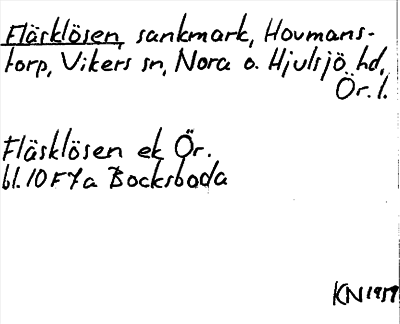 Fläsklösen, sankmark, Hovmans-
torp, Vikers sn, Nora o. Hjulsjö hd,
Ör. l.
Fläsklösen ek Ör.
bl. 10F7a Bocksboda
KN 1959